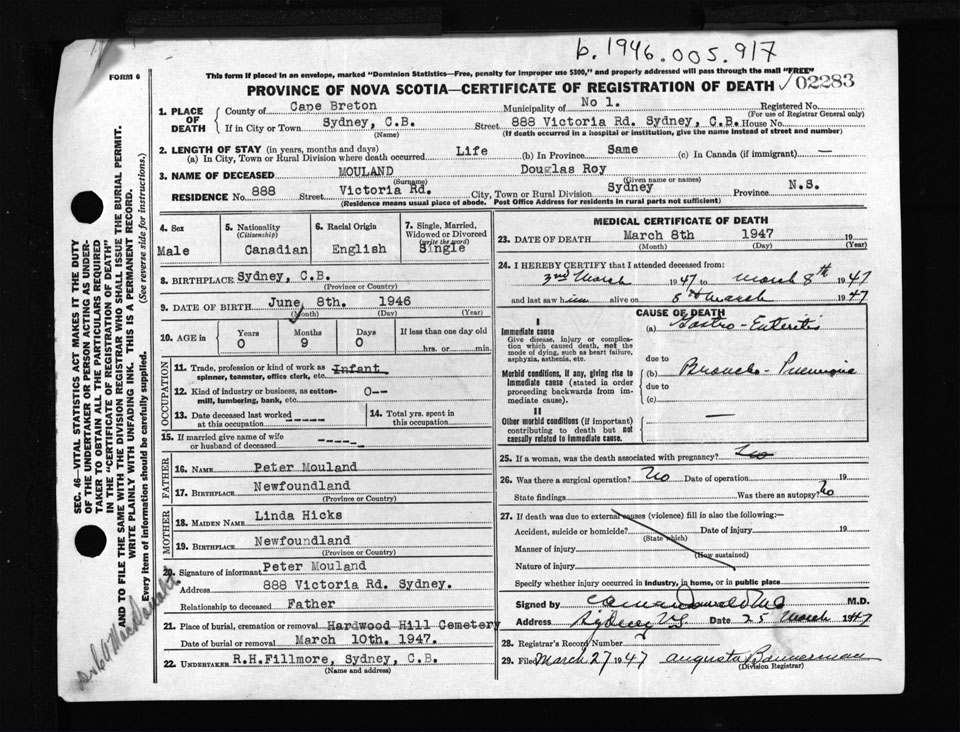 b. 1946.005.917
FORM 6
This form if placed in an envelope, marked "Dominion Statistics—Free, penalty for improper use $300," and properly addressed will pass through the mail "FREE"
PROVINCE OF NOVA SCOTIA—CERTIFICATE OF REGISTRATION OF DEATH 02283
1. PLACE OF DEATH County of Cape Breton Municipality of No 1. Registered No.
(For use of Registrar General only)
If in City or Town Sydney, C.B. Street 888 Victoria Rd. Sydney, C.B. House No
(Name) (If death occurred in a hospital or institution, give the name instead of street and number)
2. LENGTH OF STAY (in years, months and days)
(a) In City, Town or Rural Division where death occurred Life (b) In Province Same (c) In Canada (if immigrant) —
3. NAME OF DECEASED MOULAND Douglas Roy
(Surname) (Given name or names)
RESIDENCE No. 888 Street Victoria Rd. City, Town or Rural Division Sydney Province N.S.
(Residence means usual place of abode. Post Office Address for residents in rural parts not sufficient)
4. Sex Male
5. Nationality (Citizenship) Canadian
6. Racial Origin English
7. Single, Married, Widowed or Divorced (write the word) Single
8. BIRTHPLACE Sydney, C.B.
(Province or Country)
9. DATE OF BIRTH June 8th. 1946
(Month) (Day) (Year)
10. AGE in Years Months Days If less than one day old
0 9 0 hrs. or min.
OCCUPATION
11. Trade, profession or kind of work as spinner, teamster, office clerk, etc. Infant
12. Kind of industry or business, as cotton-mill, lumbering, bank, etc. O--
13. Date deceased last worked at this occupation -----
14. Total yrs. spent in this occupation
15. If married give name of wife or husband of deceased -----
FATHER
16. NAME Peter Mouland
17. BIRTHPLACE Newfoundland
(Province or Country)
MOTHER
18. MAIDEN NAME Linda Hicks
19. BIRTHPLACE Newfoundland
(Province or Country)
20. Signature of informant Peter Mouland
Address 888 Victoria Rd. Sydney.
Relationship to deceased Father
21. Place of burial, cremation or removal Hardwood Hill Cemetery
Date of burial or removal March 10th. 1947.
22. UNDERTAKER R.H.Fillmore, Sydney, C.B.
(Name and address)
MEDICAL CERTIFICATE OF DEATH
23. DATE OF DEATH March 8th 1947 19
(Month) (Day) (Year)
24. I HEREBY CERTIFY that I attended deceased from:
3rd March 1947 to March 8th 1947
and last saw him alive on 8th March 1947
CAUSE OF DEATH
I
Immediate cause
Give disease, injury or complication which caused death, not the mode of dying, such as heart failure, asphyxia, asthenia, etc.
(a) Gastro-Enteritis
due to
Morbid conditions, if any, giving rise to immediate cause (stated in order proceeding backwards from immediate cause).
(b) Broncho-Pneumonia
due to
(c)
II
Other morbid conditions (if important) contributing to death but not causally related to immediate cause. —
25. If a woman, was the death associated with pregnancy? No
26. Was there a surgical operation? No Date of operation 19
State findings Was there an autopsy? No
27. If death was due to external causes (violence) fill in also the following:—
Accident, suicide or homicide? Date of injury 19
(State which)
Manner of injury
(How sustained)
Nature of injury
Specify whether injury occurred in industry, in home, or in public place
Signed by M.D.
Address Sydney N.S. Date 25 March 1947
28. Registrar's Record Number
29. Filed March 27 1947 Augusta Bannerman
(Division Registrar)
SEC. 46—VITAL STATISTICS ACT MAKES IT THE DUTY
OF THE UNDERTAKER OR PERSON ACTING AS UNDER-
TAKER TO OBTAIN ALL THE PARTICULARS REQUIRED
IN THE "CERTIFICATE OF REGISTRATION OF DEATH"
AND TO FILE THE SAME WITH THE DIVISION REGISTRAR WHO SHALL ISSUE THE BURIAL PERMIT.
WRITE PLAINLY WITH UNFADING INK. THIS IS A PERMANENT RECORD.
Every item of information should be carefully supplied. (See reverse side for instructions.)
MacDonald